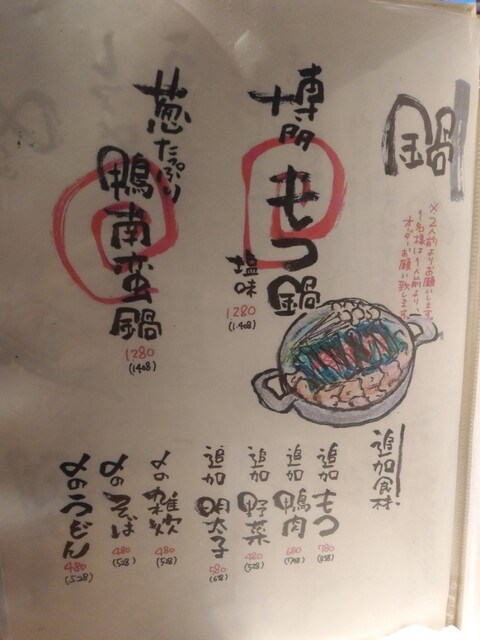 鍋
※2人前よりお願いします。
1名様は1人前より
オーダーお願い致します。
博多
もつ鍋
塩味
1280
(1408)
葱たっぷり
鴨南蛮鍋
1280
(1408)
追加食材
追加もつ
780
(858)
追加鴨肉
680
(748)
追加野菜
480
(528)
追加明太子
580
(638)
〆の雑炊
480
(528)
〆のそば
480
(528)
〆のうどん
480
(528)